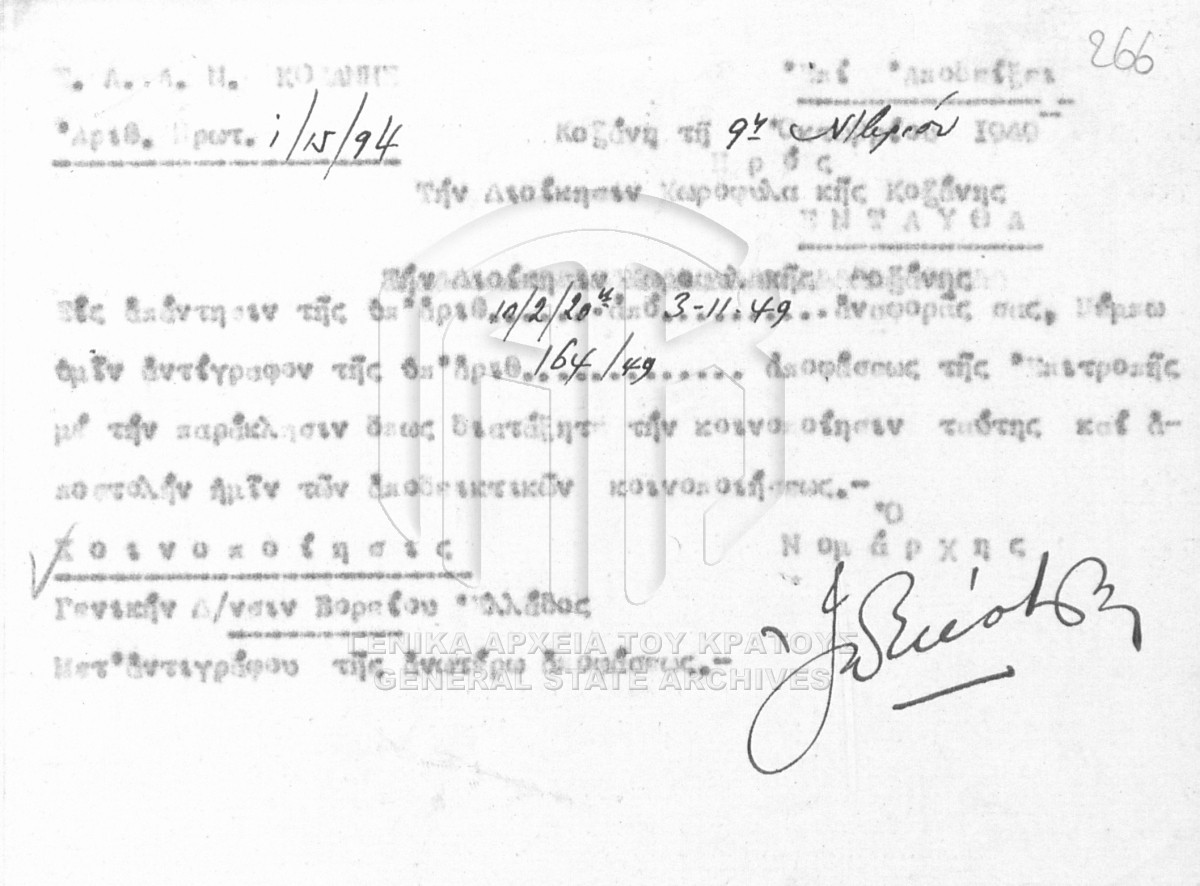 266
Ε. Α. Δ. Ν. ΚΟΖΑΝΗΣ
'Επί 'Αποδείξει
'Αριθ. Πρωτ. i/15/94
Κοζάνη τῇ 9ῃ Ν/βρίου 1949
Πρός
Τήν Διοίκησιν Χωροφυλακῆς Κοζάνης
ΕΝΤΑΥΘΑ
Τήν Διοίκησιν Χωροφυλακῆς Κοζάνης
Εἰς ἀπάντησιν τῆς ὑπ'ἀριθ. 10/2/20ης ἀπό 3-11-49 ἀναφορᾶς σας, πέμπω
ὑμῖν ἀντίγραφον τῆς ὑπ'ἀριθ. 164/49 ἀποφάσεως τῆς 'Επιτροπῆς
μέ τήν παράκλησιν ὅπως διατάξητε τήν κοινοποίησιν ταύτης καί ἀ-
ποστολήν ἡμῖν τῶν ἀποδεικτικῶν κοινοποιήσεως.-
'Ο
Κοινοποίησις
Νομάρχης
Γενικήν Δ/νσιν Βορείου 'Ελλάδος
Μετ'ἀντιγράφου τῆς ἀνωτέρω ἀποφάσεως.-
ΓΕΝΙΚΑ ΑΡΧΕΙΑ ΤΟΥ ΚΡΑΤΟΥΣ
GENERAL STATE ARCHIVES